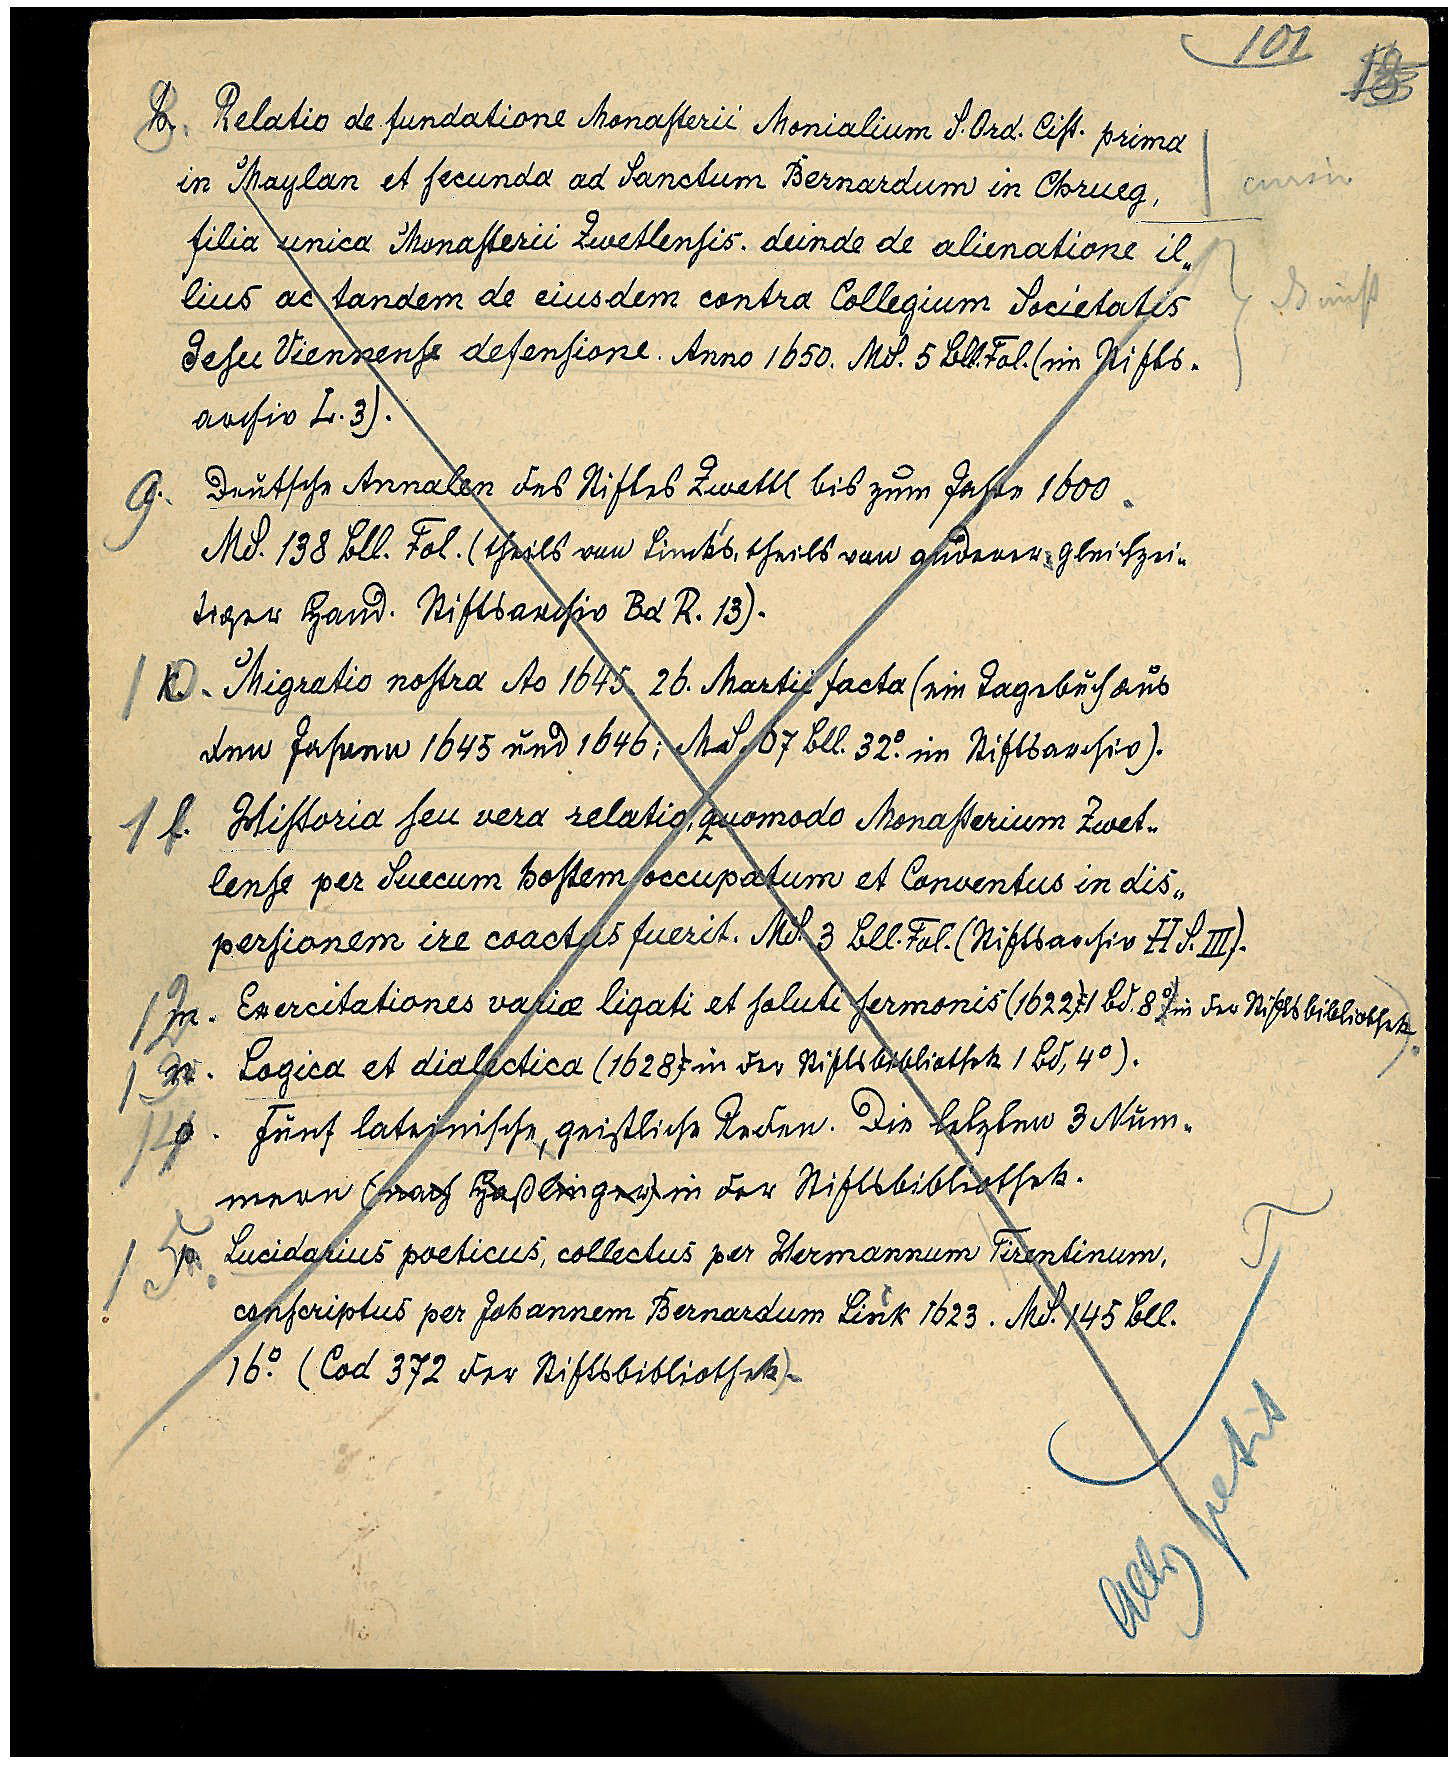 101
8. Relatio de fundatione Monasterii Monialium S. Ord. Cist. prima
in Maylan et secunda ad Sanctum Bernardum in Chrueg,
filia unica Monasterii Zwetlensis. deinde de alienatione il„
lius ac tandem de eiusdem contra Collegium Societatis
Jesu Viennense defensione. Anno 1650. MS. 5 Bll. Fol. (im Stifts-
archiv L. 3).
9. Deutsche Annalen des Stiftes Zwettl bis zum Jahre 1600.
MS. 138 Bll. Fol. (theils von Link's, theils von anderer gleichzei-
tiger Hand. Stiftsarchiv Bd R. 13).
10. Migratio nostra Ao 1645. 26. Martii facta (ein Tagebuch aus
den Jahren 1645 und 1646; MS. 67 Bll. 32°. im Stiftsarchiv).
11. Historia seu vera relatio, quomodo Monasterium Zwet„
lense per Suecum hostem occupatum et Conventus in dis„
persionem ire coactus fuerit. MS. 3 Bll. Fol. (Stiftsarchiv H S. III).
12. Exercitationes variæ ligati et solute sermonis (1622; 1 Bd. 8° in der Stiftsbibliothek).
13. Logica et dialectica (1628; in der Stiftsbibliothek 1 Bd, 4°).
14. Fünf lateinische, geistliche Reden. Die letzten 3 Num-
mern (nach Haßlinger) in der Stiftsbibliothek.
15. Lucidarius poeticus, collectus per Hermannum Tirentinum,
conscriptus per Johannem Bernardum Link 1623. MS. 145 Bll.
16°. (Cod 372 der Stiftsbibliothek).
petit